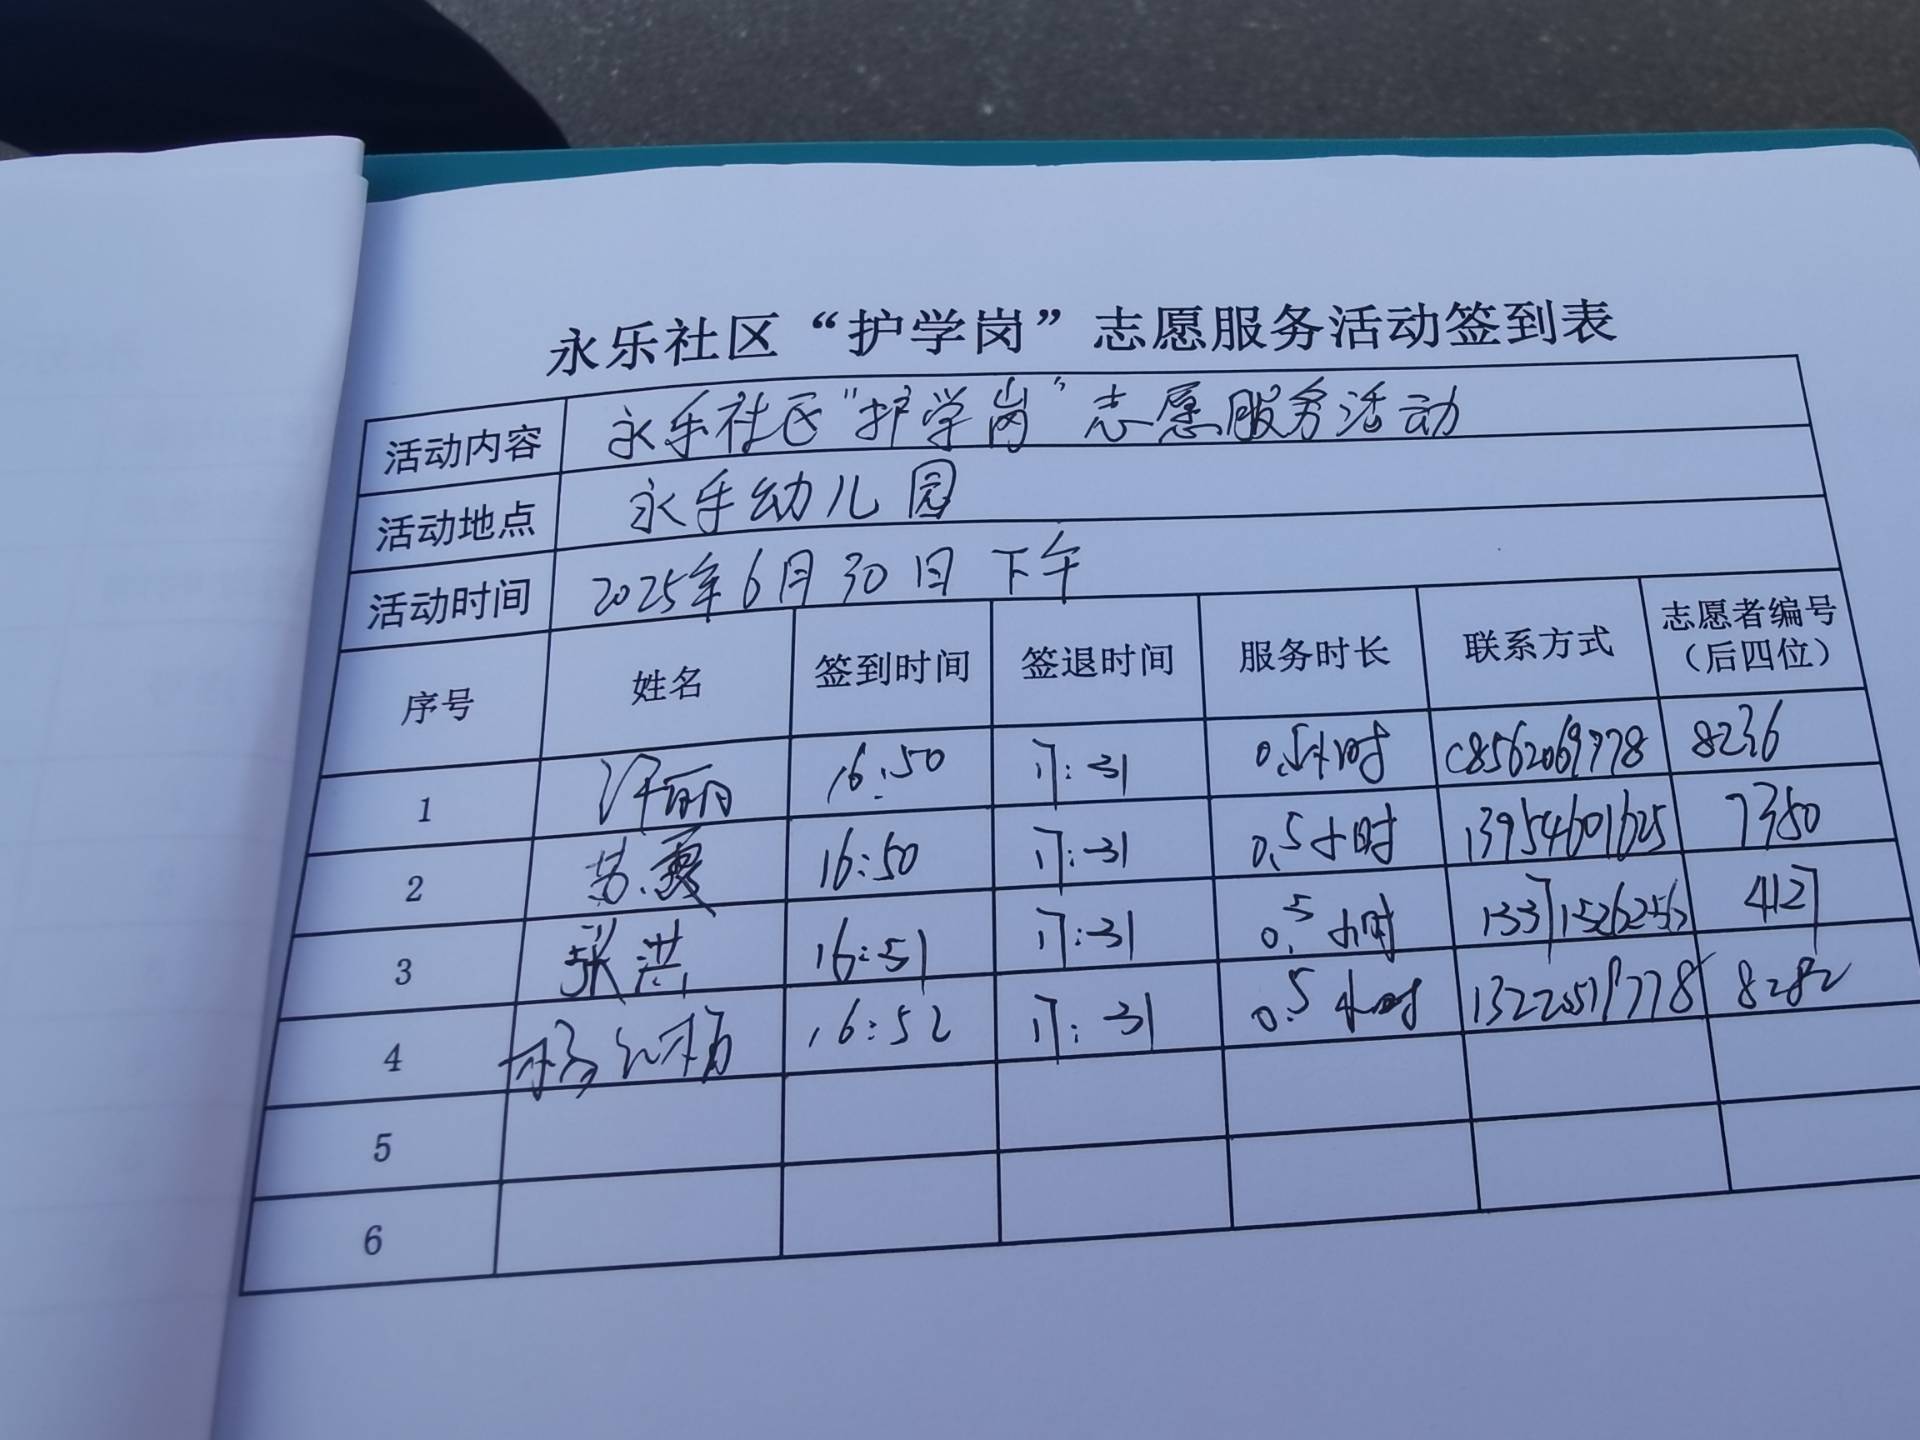 永乐社区“护学岗”志愿服务活动签到表
活动内容 永乐社区“护学岗”志愿服务活动
活动地点 永乐幼儿园
活动时间 2025年6月30日下午
序号 姓名 签到时间 签退时间 服务时长 联系方式 志愿者编号（后四位）
1 许丽 16:50 17:31 0.5小时 8236
2 苏霞 16:50 17:31 0.5小时 13954601625 7350
3 张洪 16:51 17:31 0.5小时 4127
4 16:52 17:31 0.5小时 13220519778 8282
5
6